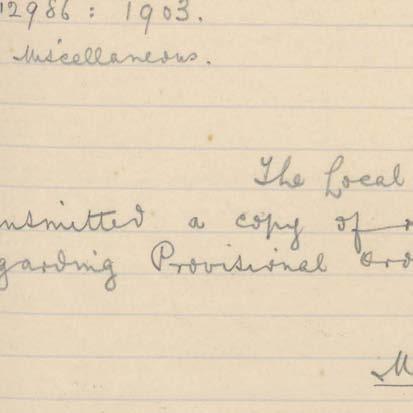 12986 : 1903.
Miscellaneous.
The Local
nsmitted a copy of r
garding Provisional Ord
M